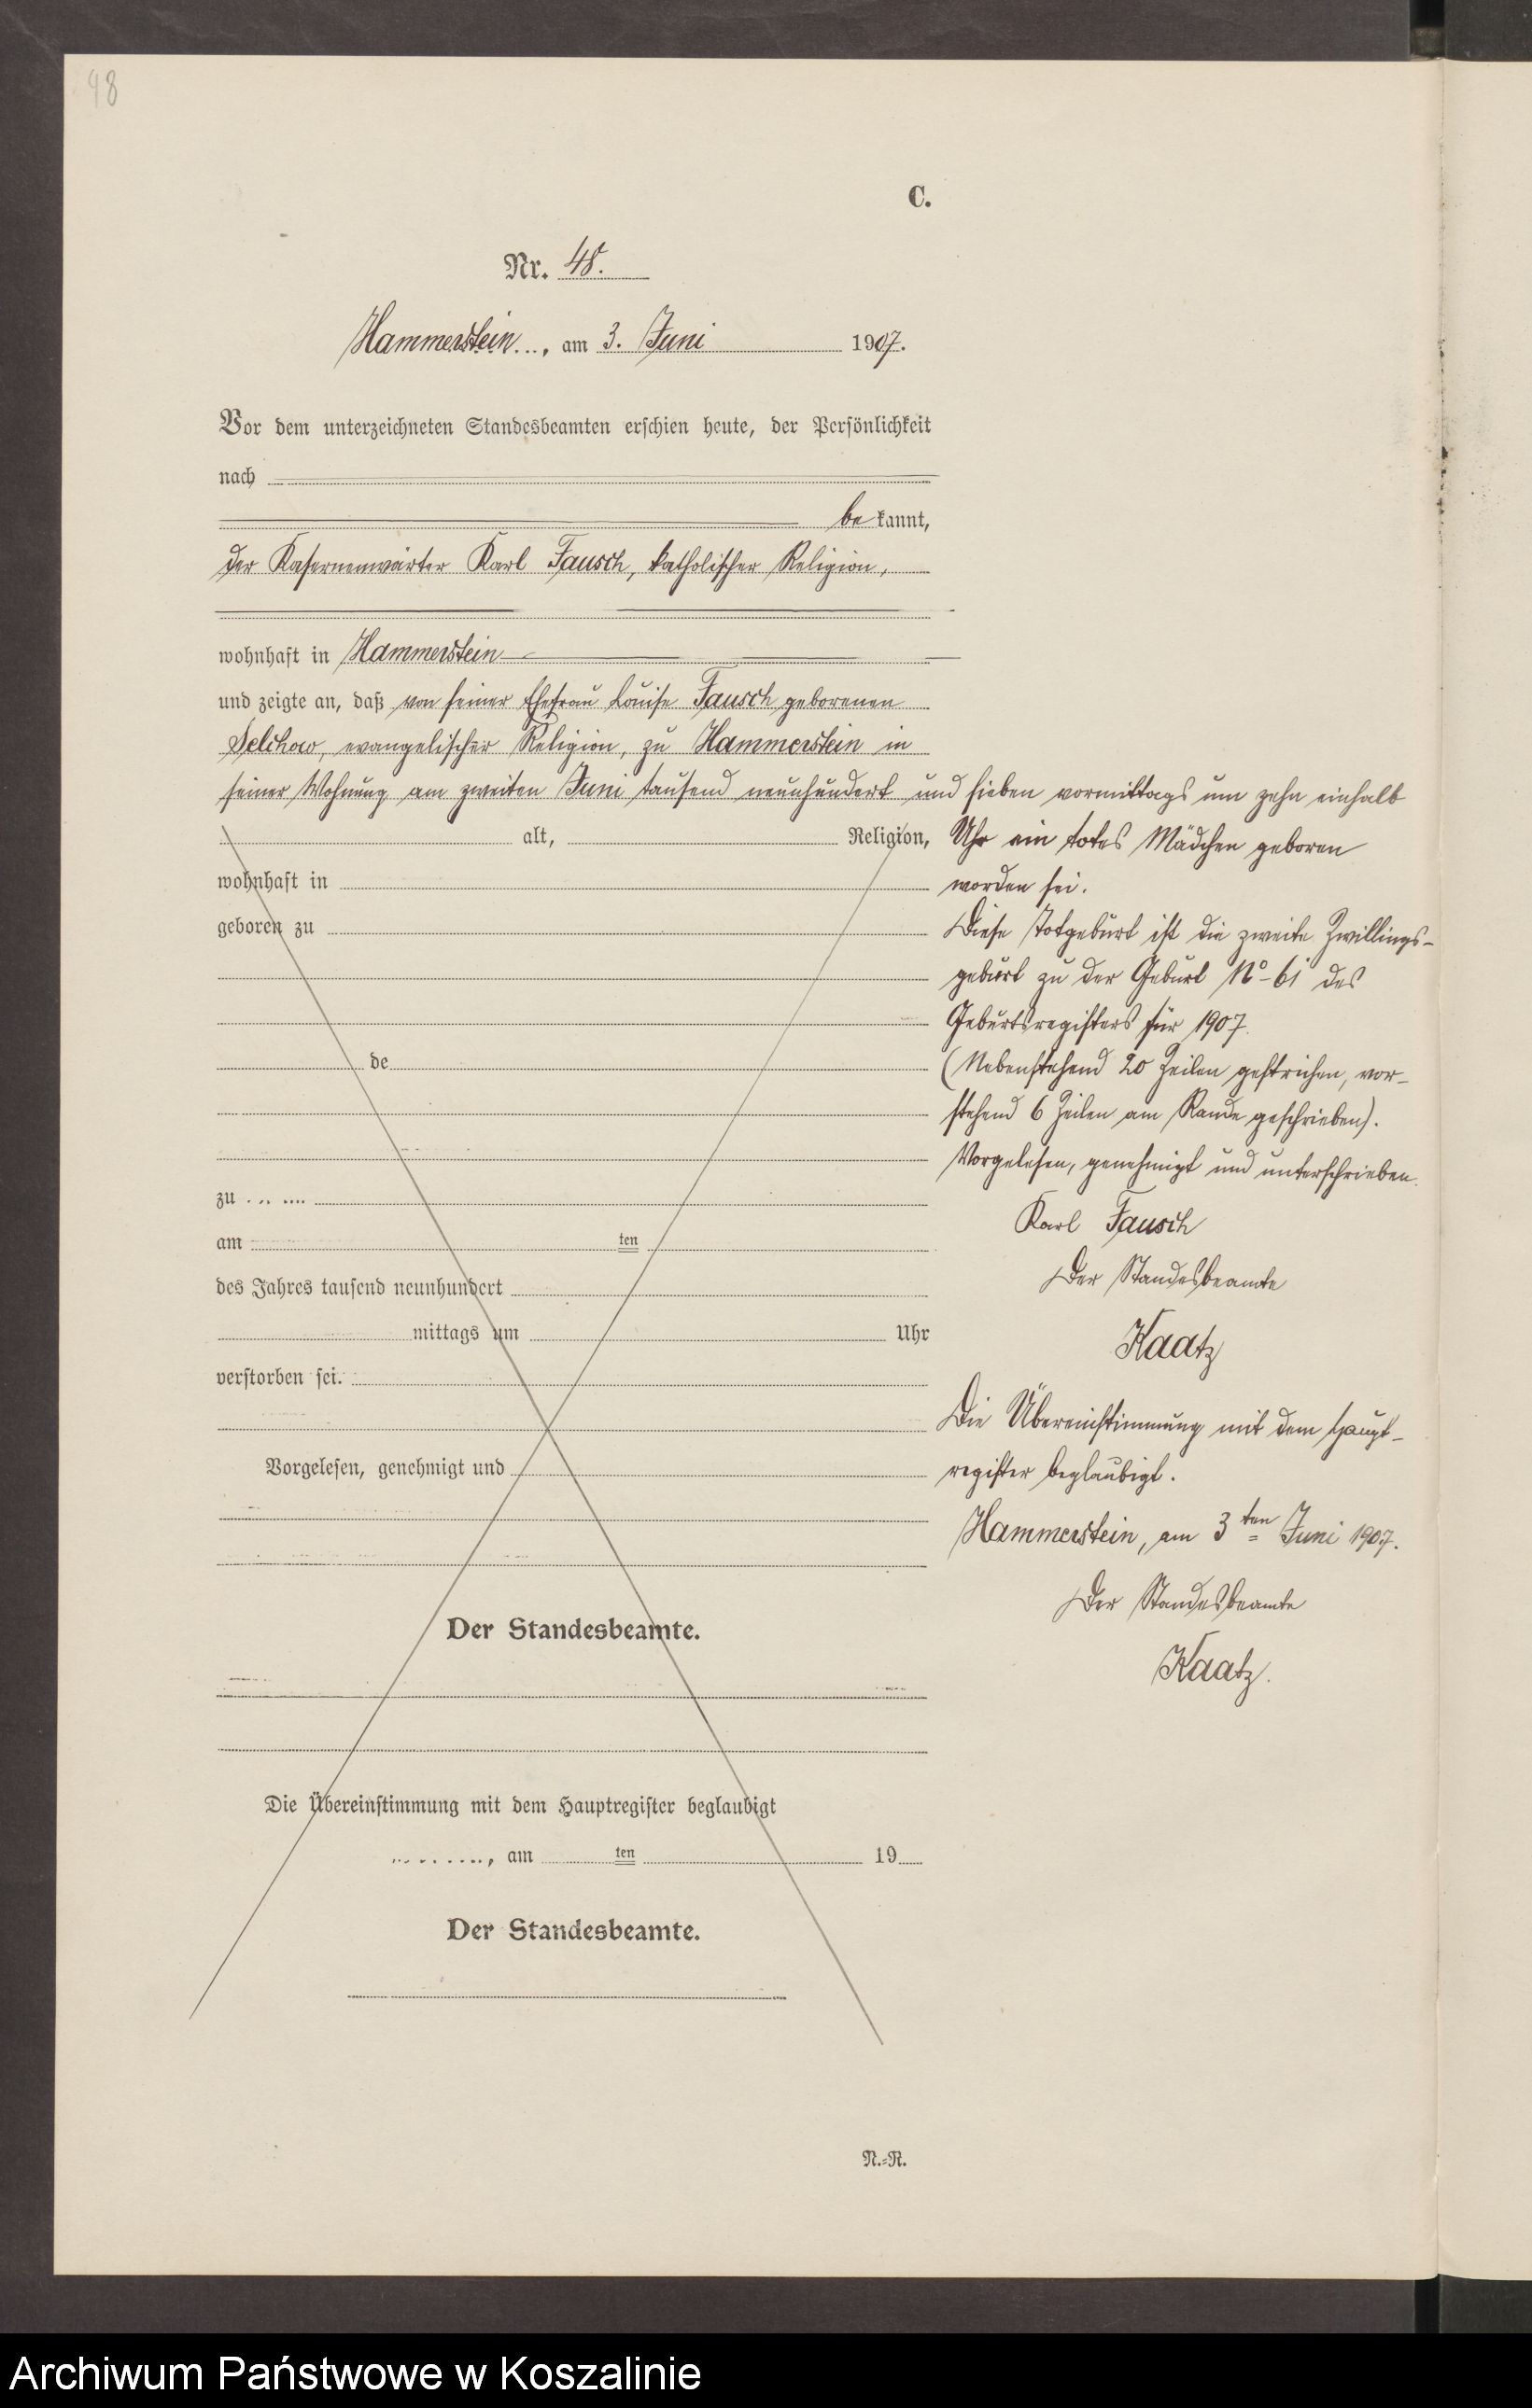 48
C.
Nr. 48.
Hammerstein..., am 3. Juni 1907.
Vor dem unterzeichneten Standesbeamten erschien heute, der Persönlichkeit
nach
be kannt,
der Kasernenwärter Karl Fausch, katholischer Religion,
wohnhaft in Hammerstein
und zeigte an, daß von seiner Ehefrau Louise Fausch geborenen
Selchow, evangelischer Religion, zu Hammerstein in
seiner Wohnung am zweiten Juni tausend neunhundert und sieben vormittags um zehn einhalb
Uhr ein totes Mädchen geboren
worden sei.
Diese Totgeburt ist die zweite Zwillings-
geburt zu der Geburt No- 61 des
Geburtsregisters für 1907.
(Nebenstehend 20 Zeilen gestrichen, vor-
stehend 6 Zeilen am Rande geschrieben).
Vorgelesen, genehmigt und unterschrieben.
Karl Fausch
Der Standesbeamte
Kaatz
Die Übereinstimmung mit dem Haupt-
register beglaubigt.
Hammerstein, am 3ten Juni 1907.
Der Standesbeamte
Kaatz.
alt, Religion,
wohnhaft in
geboren zu
de
zu . .. ....
am ten
des Jahres tausend neunhundert
mittags um Uhr
verstorben sei.
Vorgelesen, genehmigt und
Der Standesbeamte.
Die Übereinstimmung mit dem Hauptregister beglaubigt
........, am ten 19
Der Standesbeamte.
N.=R.
Archiwum Państwowe w Koszalinie